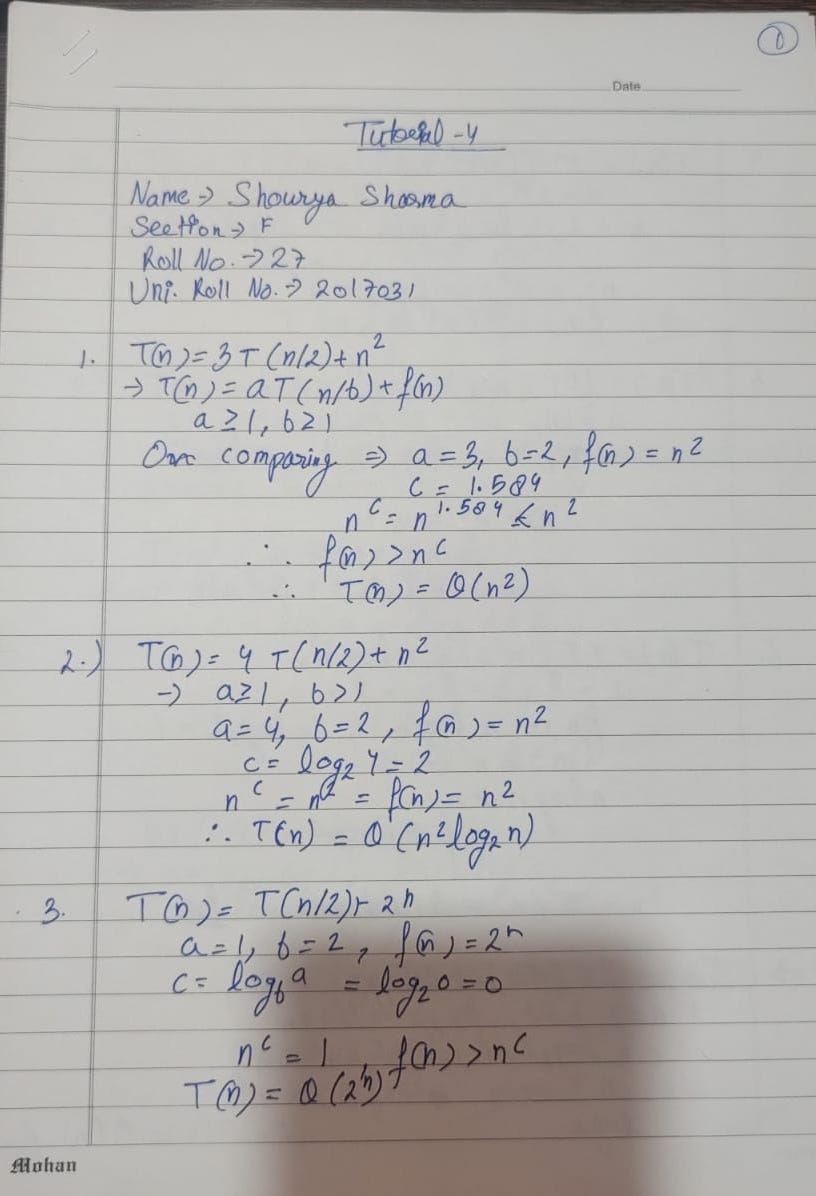 1
Date
Tutorial -4
Name → Shourya Sharma
Section → F
Roll No. → 27
Uni. Roll No. → 2017031
1. T(n) = 3T(n/2) + n²
→ T(n) = aT(n/b) + f(n)
a ≥ 1, b ≥ 1
On comparing ⇒ a = 3, b = 2, f(n) = n²
c = 1.584
n^c = n^1.584 < n²
∴ f(n) > n^c
∴ T(n) = θ(n²)
2.) T(n) = 4T(n/2) + n²
→ a ≥ 1, b > 1
a = 4, b = 2, f(n) = n²
c = log₂ 4 = 2
n^c = n² = f(n) = n²
∴ T(n) = θ(n² log₂ n)
3. T(n) = T(n/2) + 2ⁿ
a = 1, b = 2, f(n) = 2ⁿ
c = log_b a = log₂ 0 = 0
n^c = 1, f(n) > n^c
T(n) = θ(2ⁿ)
Mohan